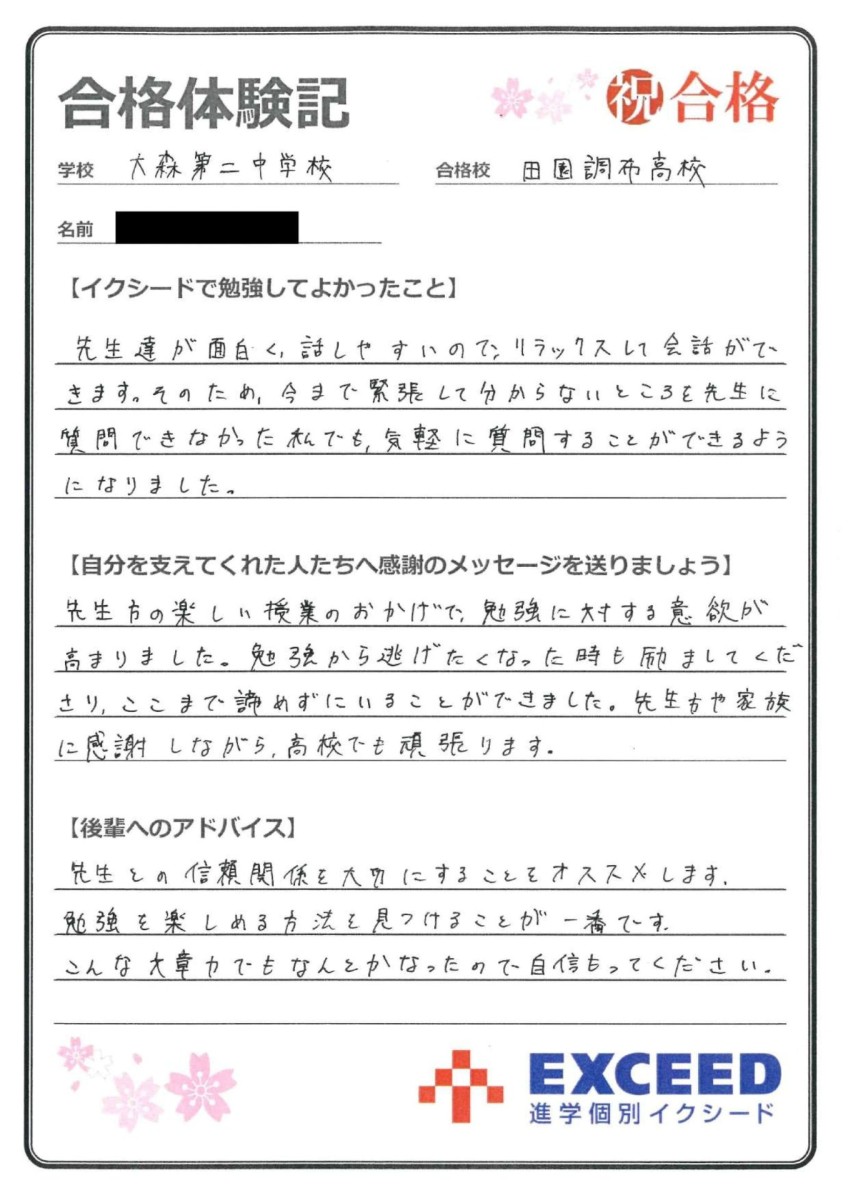 合格体験記
祝 合格
学校 大森第二中学校
合格校 田園調布高校
名前
【イクシードで勉強してよかったこと】
先生達が面白く、話しやすいので、リラックスして会話がで
きます。そのため、今まで緊張して分からないところを先生に
質問できなかった私でも、気軽に質問することができるよう
になりました。
【自分を支えてくれた人たちへ感謝のメッセージを送りましょう】
先生方の楽しい授業のおかげで、勉強に対する意欲が
高まりました。勉強から逃げたくなった時も励ましてくだ
さり、ここまで諦めずにいることができました。先生方や家族
に感謝しながら、高校でも頑張ります。
【後輩へのアドバイス】
先生との信頼関係を大切にすることをオススメします。
勉強を楽しめる方法を見つけることが一番です。
こんな文章力でもなんとかなったので自信もってください。
EXCEED
進学個別イクシード